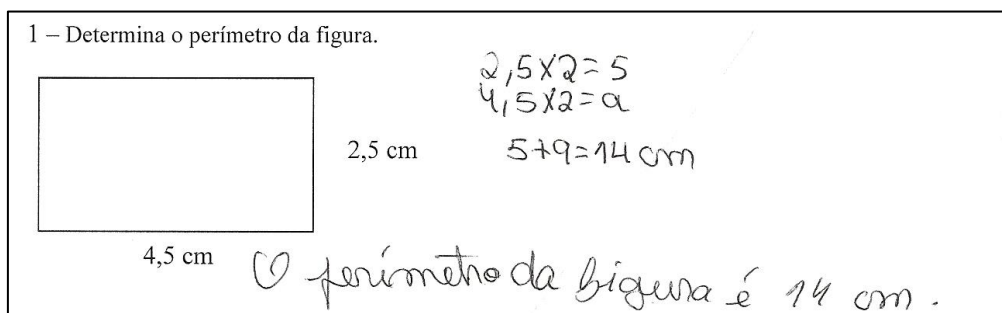 1 – Determina o perímetro da figura.
2,5x2=5
4,5x2=9
2,5 cm
5+9=14 cm
4,5 cm
O perímetro da figura é 14 cm.